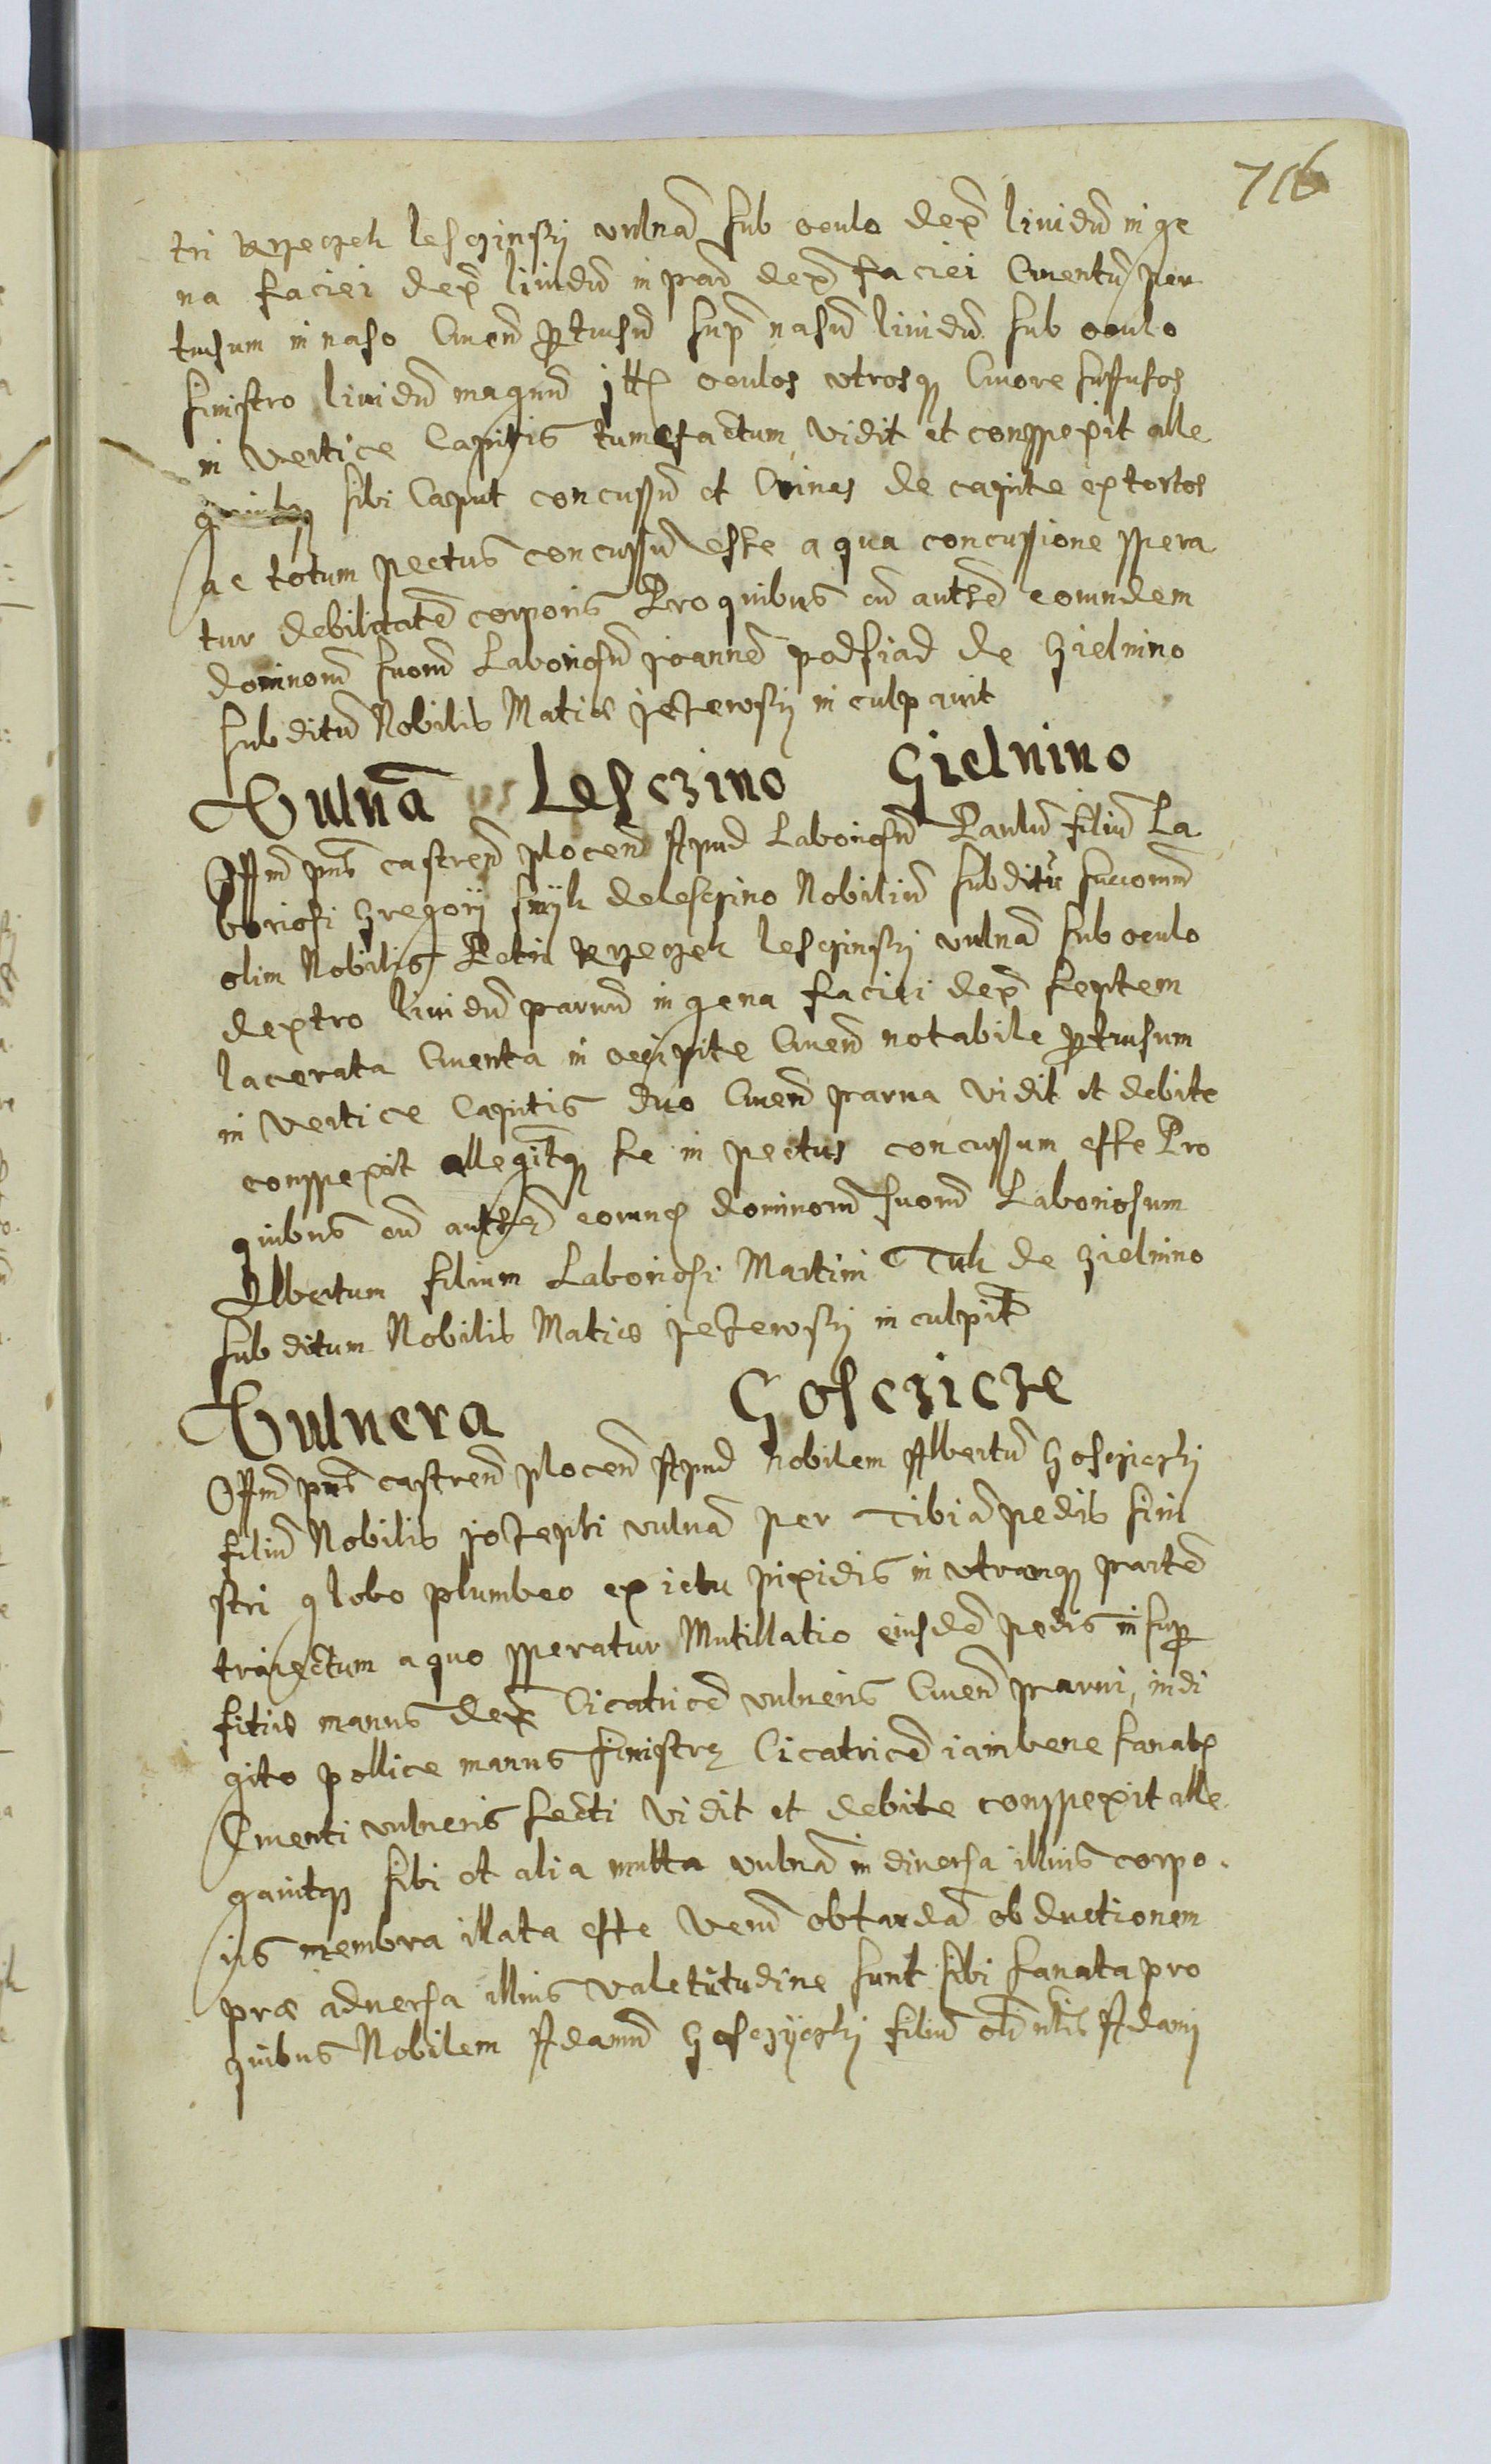 716
tri Krzeczek lesczinskj vulnā sub oculo dex̄ liuidū in ge
na faciei dex̄ liuidū in par̄ dex̄ faciei Cruentū per
tusum in naso Cruen̄ ꝑtusū sup̄ nasū liuidū sub oculo
sinistro liuidū magnū jtt oculos vtrosq3 Cruore suffusos
in vertice Capitis tumefactum vidit et conspexit alle
sibi Caput concussū et Crines de capite extortos
ac totum pectus concussū esse a qua concussione spera
tur debilitatē corporis Pro quibus oī authō eorundem
dominorū suorū Laboriosū joannē podsiad de Gielnino
subditū Nobilis Matiæ jezewskj inculpauit
Vulnā Lesczino Gielnino
Offm̄ pn̄s castren̄ plocen̄ Apud Laboriosū Paulū filiū La
boriosi Gregorij de lesczino Nobiliū subditū suorum
olim Nobilis Petri Krzeczek lesczinskj vulnā sub oculo
dextro liuidū paruū in gena faciei dex̄ septem
lacerata Cruenta in occipite Cruen̄ notabile ꝑtusum
in vertice Capitis duo Cruen̄ parua vidit et debite
conspexit allegītq3 se in pectus concussum esse Pro
quibus oī authō eorund dominorū suorū Laboriosum
Albertum filium Laboriosi Martini Tuk de Gielnino
subditum Nobilis Matiæ jezewskj inculpīt
Vulnera Gosczicze
Offm̄ pn̄s castren̄ plocen̄ Apud Nobilem Albertū Gosczieskj
filiū Nobilis jozephi vulnā per Tibiā pedis sini
stri globo plumbeo ex ictu pixidis in vtramq3 partē
traiectum a quo speratur Mutillatio eiusdē pedis in sup̄
fitie manus dex̄ Cicatricē vulneris Cruen̄ parui, in di
gito pollice manus sinistrę Cicatricē iam bene sanatę
Cruenti vulneris secti vidit et debite conspexit alle
gauitq3 sibi et alia multa vulnā in diuersa illius corpo
ris membra illata esse Verū ob tardā obductionem
præ aduersa illius valetitudine sunt sibi sanata pro
quibus Nobilem Adamū Gosczijeskj filiū olī nlis Adami